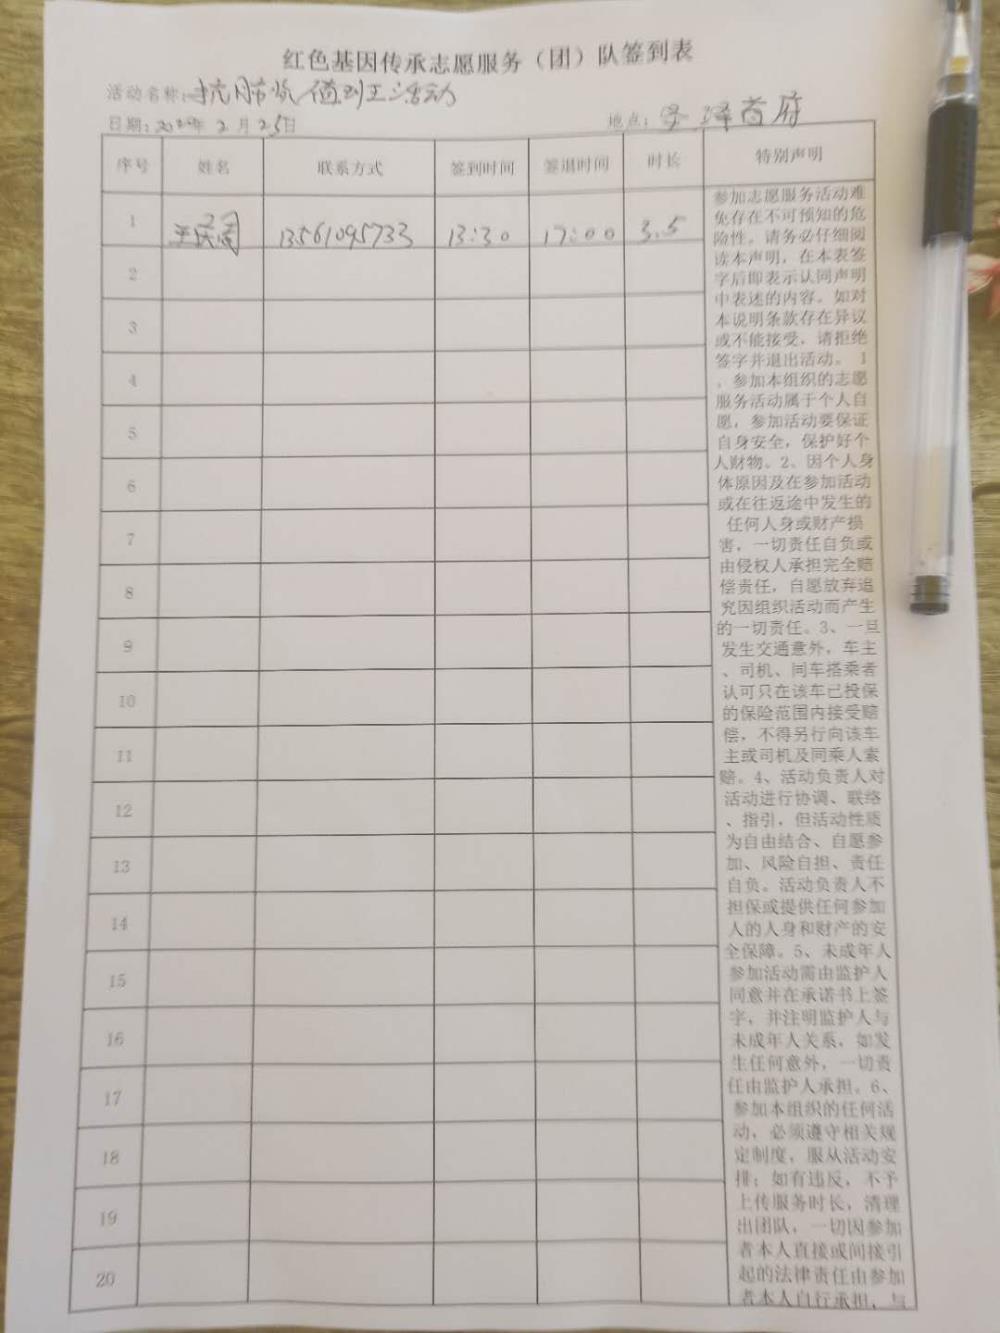 红色基因传承志愿服务（团）队签到表
活动名称：抗肺炎 值班活动
日期：2020年 2 月 25日 地点：圣泽首府
序号 姓名 联系方式 签到时间 签退时间 时长 特别声明
1 13561095733 13:30 17:00 3.5
2
3
4
5
6
7
8
9
10
11
12
13
14
15
16
17
18
19
20
参加志愿服务活动难
免存在不可预知的危
险性。请务必仔细阅
读本声明，在本表签
字后即表示认同声明
中表述的内容。如对
本说明条款存在异议
或不能接受，请拒绝
签字并退出活动。 1
、参加本组织的志愿
服务活动属于个人自
愿，参加活动要保证
自身安全，保护好个
人财物。2、因个人身
体原因及在参加活动
或在往返途中发生的
任何人身或财产损
害，一切责任自负或
由侵权人承担完全赔
偿责任，自愿放弃追
究因组织活动而产生
的一切责任。3、一旦
发生交通意外，车主
、司机、同车搭乘者
认可只在该车已投保
的保险范围内接受赔
偿，不得另行向该车
主或司机及同乘人索
赔。4、活动负责人对
活动进行协调、联络
、指引，但活动性质
为自由结合、自愿参
加、风险自担、责任
自负。活动负责人不
担保或提供任何参加
人的人身和财产的安
全保障。5、未成年人
参加活动需由监护人
同意并在承诺书上签
字，并注明监护人与
未成年人关系，如发
生任何意外，一切责
任由监护人承担。6、
参加本组织的任何活
动，必须遵守相关规
定制度，服从活动安
排；如有违反，不予
上传服务时长，清理
出团队，一切因参加
者本人直接或间接引
起的法律责任由参加
者本人自行承担，与